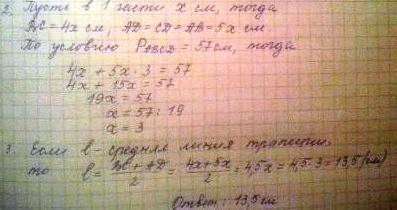 2. Пусть в 1 части x см, тогда
BC = 4x см, AD = CD = AB = 5x см
По условию PABCD = 57 см, тогда
4x + 5x · 3 = 57
4x + 15x = 57
19x = 57
x = 57 : 19
x = 3
3. Если l – средняя линия трапеции
то l = BC + AD / 2 = 4x + 5x / 2 = 4,5x = 4,5 · 3 = 13,5 (см)
Ответ: 13,5 см